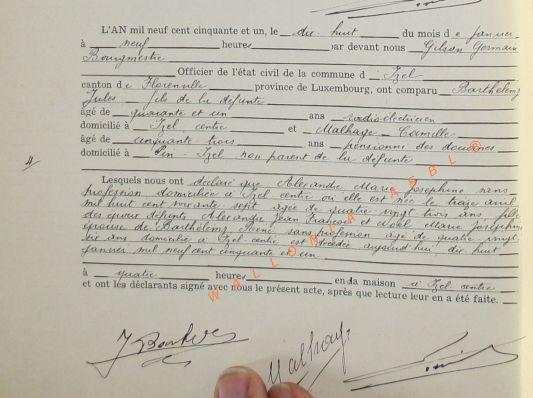 L'AN mil neuf cent cinquante et un, le dix-huit du mois de janvier
à neuf heures par devant nous Gilson Germain
Bourgmestre
Officier de l'état civil de la commune d Izel
canton de Florenville province de Luxembourg, ont comparu Barthélemy
Jules fils de la défunte
âgé de quarante et un ans radio-électricien
domicilié à Izel centre et Malhage Camille
âgé de cinquante trois ans pensionné des douanes
domicilié à Pin-Izel non parent de la défunte
4
Lesquels nous ont déclaré que Alexandre Marie Josephine sans
profession domiciliée à Izel centre où elle est née le treize avril
mil huit cent soixante sept âgée de quatre-vingt trois ans fille
des époux défunts Alexandre Jean François et Noël Marie Joséphine
épouse de Barthélemy René sans profession âgé de quatre vingt
six ans domicilié à Izel centre est décédée aujourd'hui dix huit
janvier mil neuf cent cinquante et un
à quatre heures en la maison à Izel centre
et ont les déclarants signé avec nous le présent acte, après que lecture leur en a été faite.
WALLONIA ASBL ©
Malhage